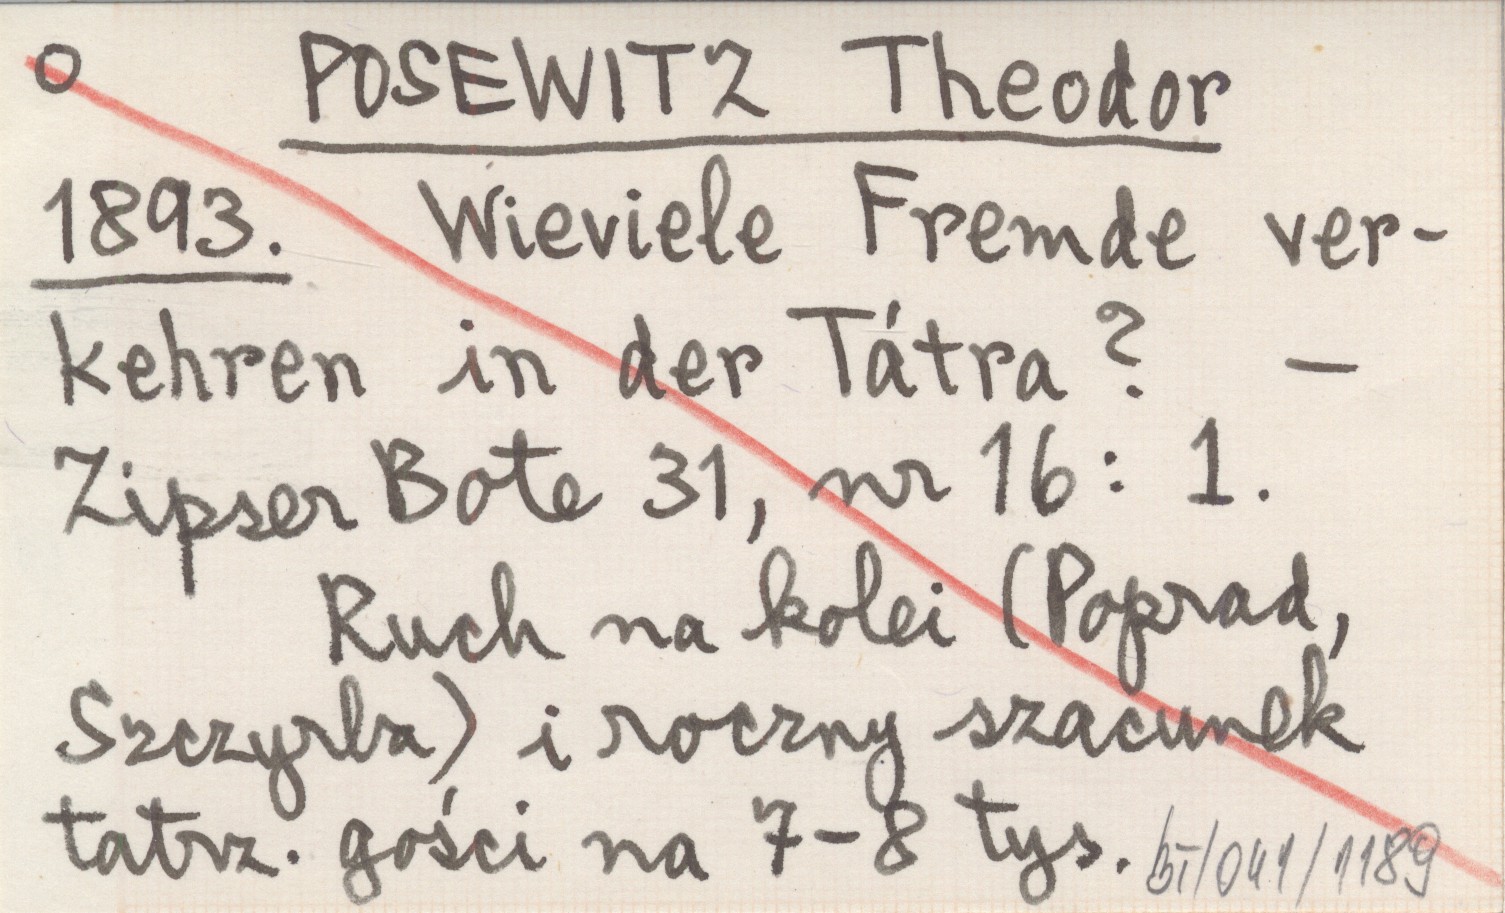 O POSEWITZ Theodor
1893. Wieviele Fremde ver-
kehren in der Tátra? —
Zipser Bote 31, nr 16: 1.
Ruch na kolei (Poprad,
Szczyrba) i roczny szacunek
tatrz. gości na 7-8 tys.